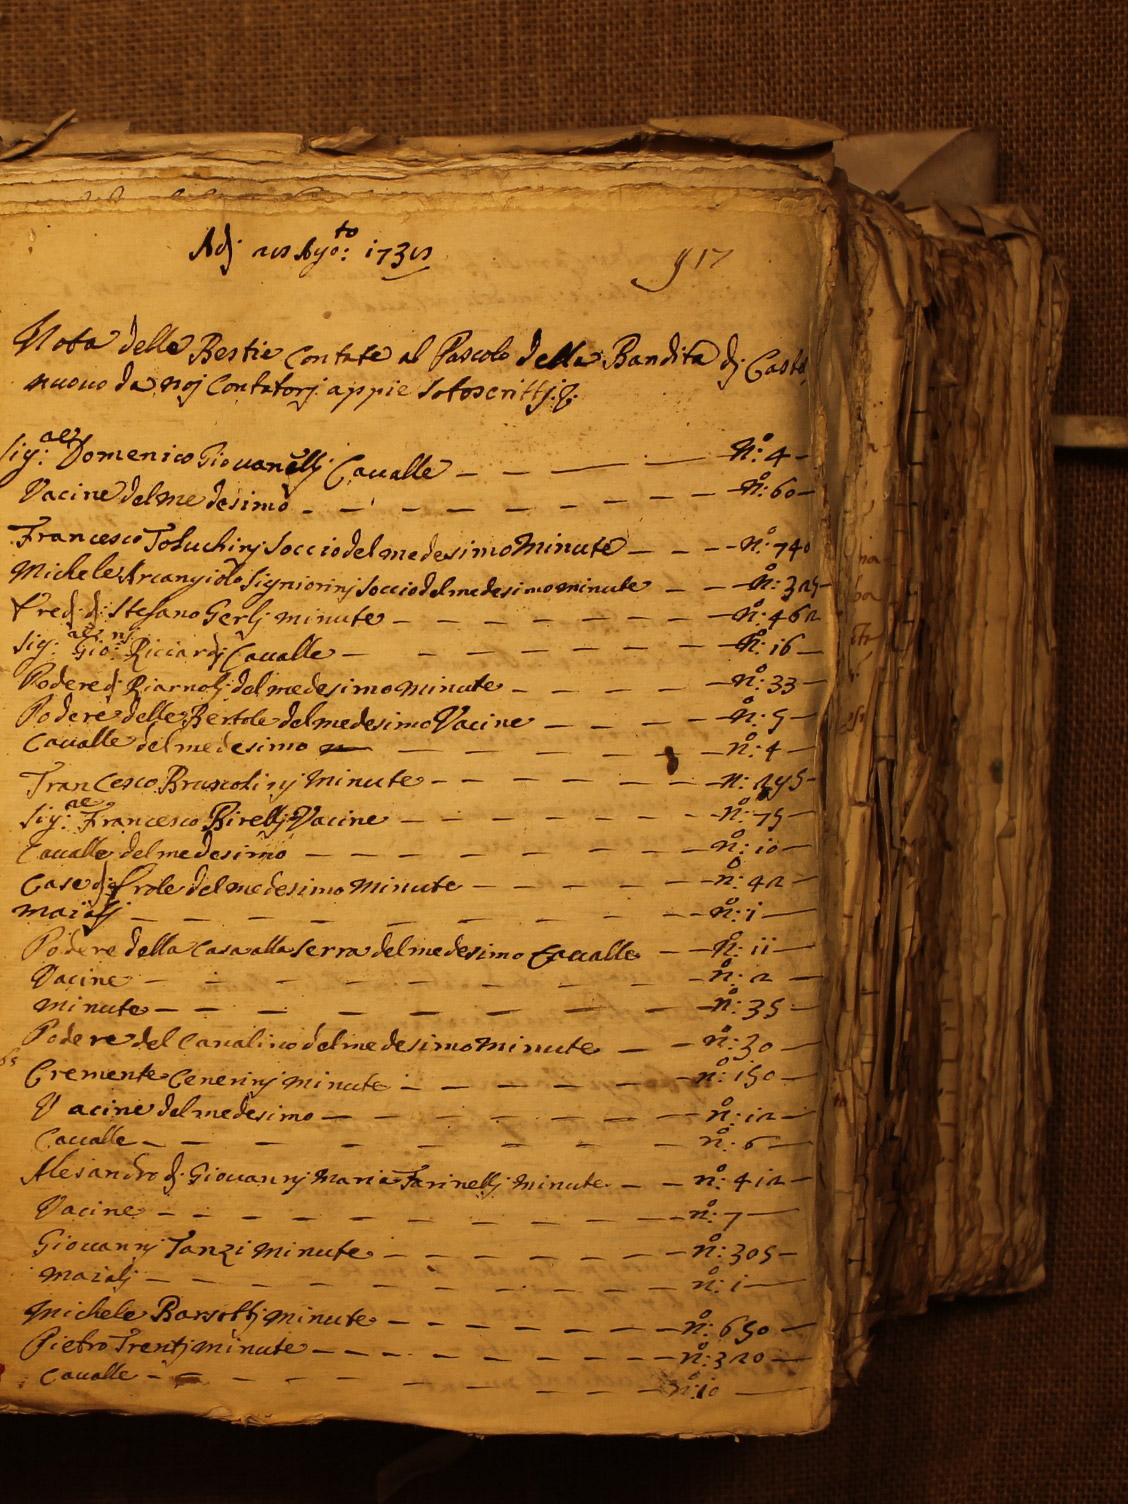 Adj 25 Ago:to 1735
917
Nota delle Bestie Contate al Pascolo della Bandita dj Castel
nuouo da noj Contatorj appie Sotoscrittj
Sig:re Domenico Giouanellj Caualle N:o 4
Vacine del medesimo N:o 60
Francesco Toluchinj Soccio del medesimo Minute N:o 740
Michele Arcangiolo Signiorinj Soccio del medesimo minute N:o 325
Eredj dj Stefano Gerlj minute N:o 462
Sig:re Gio: Riccardj Caualle N:o 16
Podere dj Riarnolj del medesimo Minute N:o 33
Podere delle Bertole del medesimo Vacine N:o 5
Caualle del medesimo N:o 4
Francesco Bruscolinj Minute N:
Sig:re Francesco Birellj Vacine N:o 75
Caualle del medesimo N:o 10
Case dj del medesimo Minute N:o 42
maialj N:o 1
Podere della Casa alla Serra del medesimo Caualle N:o 11
Vacine N:o 2
minute N:o 35
Podere del Canalino del medesimo Minute N:o 30
Cremente Cenerinj minute N:o 150
Vacine del medesimo N:o 12
Caualle N:o 6
Alesandro dj Giouannj Maria Farinellj minute N:o 412
Vacine N:o 7
Giouannj Tanzi Minute N:o 305
maialj N:o 1
Michele Barsottj minute N:o 650
Pietro Trentj minute N:o 320
Caualle N:o 10